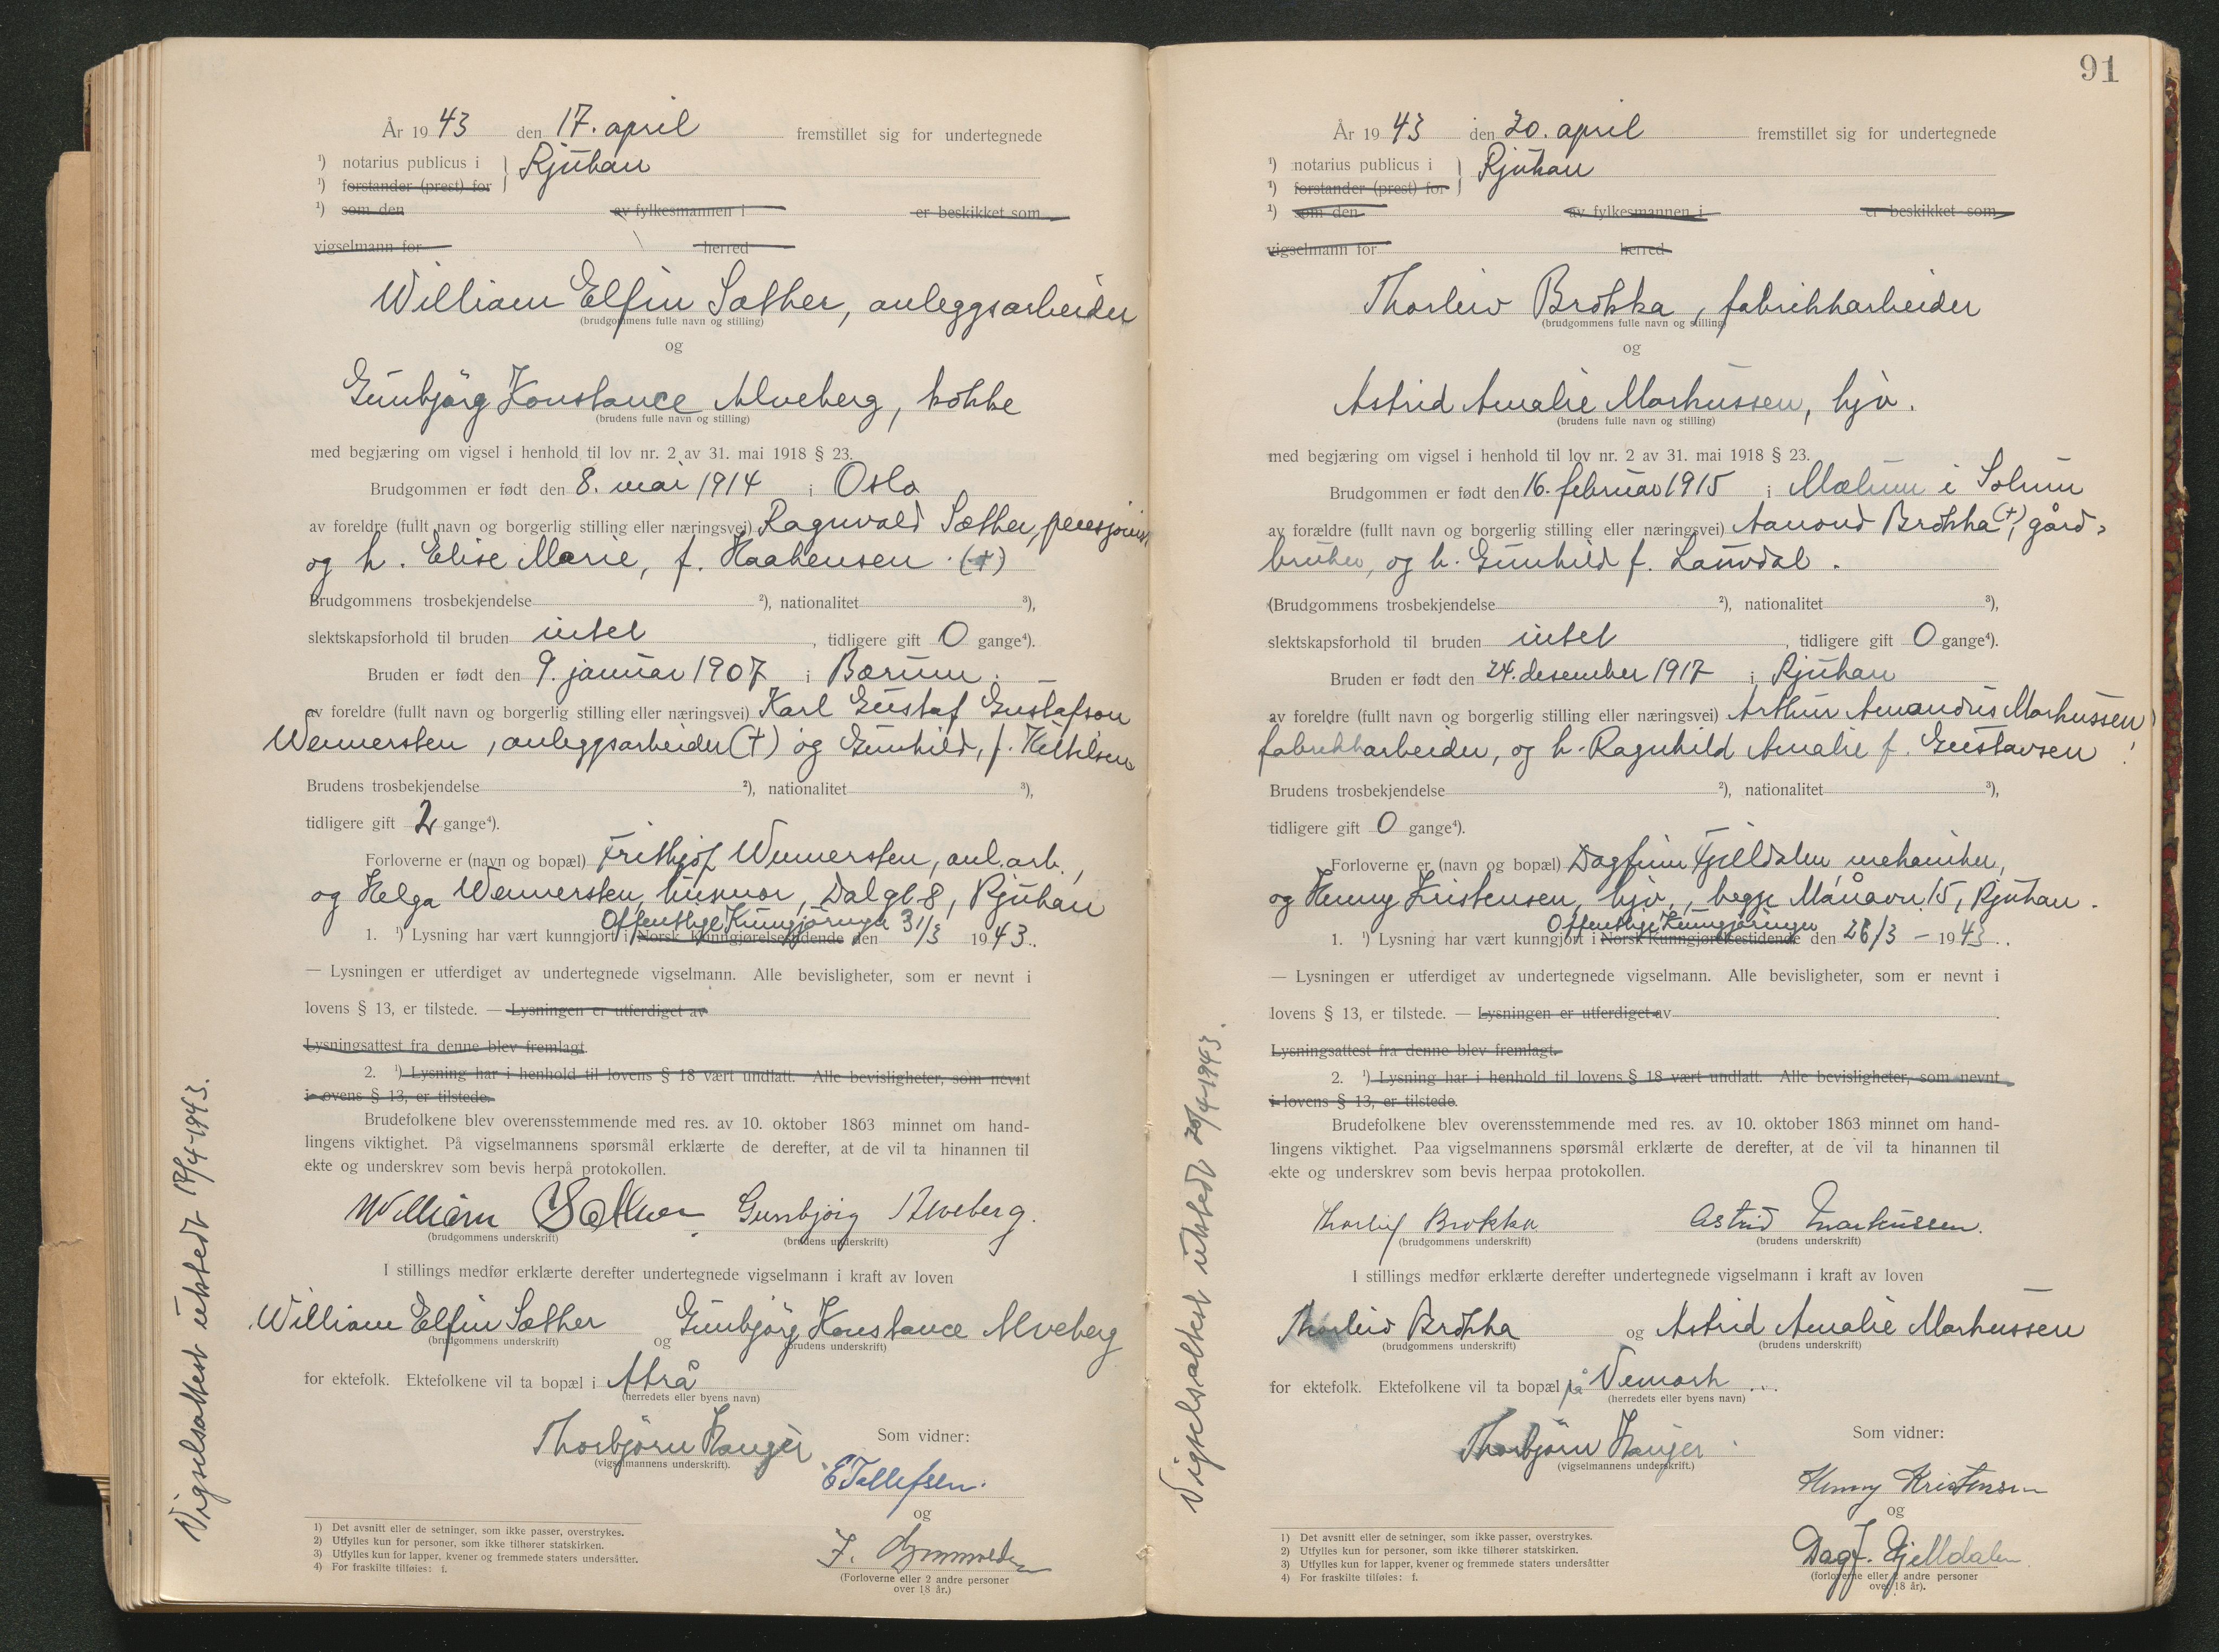 År 19 43 den 17. april fremstillet sig for undertegnede
¹) notarius publicus i } Rjukan
¹) forstander (prest) for
¹) som den av fylkesmannen i er beskikket som
vigselmann for herred
William Elfin Sæther, anleggsarbeider
(brudgommens fulle navn og stilling)
og
Gunbjörg Konstance Alveberg, kokke
(brudens fulle navn og stilling)
med begjæring om vigsel i henhold til lov nr. 2 av 31. mai 1918 § 23.
Brudgommen er født den 8. mai 1914 i Oslo
av foreldre (fullt navn og borgerlig stilling eller næringsvei) Ragnvald Sæther, pensjonist
og h. Elise Marie, f. Haakensen. (+)
Brudgommens trosbekjendelse ²), nationalitet ³),
slektskapsforhold til bruden intet , tidligere gift 0 gange⁴).
Bruden er født den 9. januar 1907 i Bærum.
av foreldre (fullt navn og borgerlig stilling eller næringsvei) Karl Gustaf Gustafson
Wennersten, anleggsarbeider (+) og Gunhild, f. Kittilsen
Brudens trosbekjendelse ²), nationalitet ³),
tidligere gift 2 gange⁴).
Forloverne er (navn og bopæl) Frithjof Wennersten, anl.arb.,
og Helga Wennersten, husmor, Dalgt 8, Rjukan
Offentlige Kunngjöringer
1. ¹) Lysning har vært kunngjort i Norsk Kunngjørelsestidende den 31/3 1943.
— Lysningen er utferdiget av undertegnede vigselmann. Alle bevisligheter, som er nevnt i
lovens § 13, er tilstede. — Lysningen er utferdiget av
Lysningsattest fra denne blev fremlagt.
2. ¹) Lysning har i henhold til lovens § 18 vært undlatt. Alle bevisligheter, som nevnt
i lovens § 13, er tilstede.
Brudefolkene blev overensstemmende med res. av 10. oktober 1863 minnet om hand-
lingens viktighet. På vigselmannens spørsmål erklærte de derefter, at de vil ta hinannen til
ekte og underskrev som bevis herpå protokollen.
William Sæther Gunbjörg Alveberg.
(brudgommens underskrift) (brudens underskrift)
I stillings medfør erklærte derefter undertegnede vigselmann i kraft av loven
William Elfin Sæther og Gunbjörg Konstance Alveberg
(brudgommens underskrift) (brudens underskrift)
for ektefolk. Ektefolkene vil ta bopæl i Atrå
(herredets eller byens navn)
Thorbjörn Hanger
(vigselmannens underskrift).
Som vidner:
E Tollefsen.
og
(Forloverne eller 2 andre personer
over 18 år.)
1) Det avsnitt eller de setninger, som ikke passer, overstrykes.
2) Utfylles kun for personer, som ikke tilhører statskirken.
3) Utfylles kun for lapper, kvener og fremmede staters undersåtter.
4) For fraskilte tilføies: f.
Vigselsattest utstedt 17/4-1943.
91
År 19 43 den 20. april fremstillet sig for undertegnede
¹) notarius publicus i } Rjukan
¹) forstander (prest) for
¹) som den av fylkesmannen i er beskikket som
vigselmann for herred
Thorleiv Brökka, fabrikkarbeider
(brudgommens fulle navn og stilling)
og
Astrid Amalie Markussen, hjv.
(brudens fulle navn og stilling)
med begjæring om vigsel i henhold til lov nr. 2 av 31. mai 1918 § 23.
Brudgommen er født den 16. februar 1915 i Mælum i Solum
av forældre (fullt navn og borgerlig stilling eller næringsvei) Aamond Brökka (+), gård-
bruker, og h. Gunhild f. Laurdal.
(Brudgommens trosbekjendelse ²), nationalitet ³),
slektskapsforhold til bruden intet , tidligere gift 0 gange⁴).
Bruden er født den 24. desember 1917 i Rjukan
av foreldre (fullt navn og borgerlig stilling eller næringsvei) Arthur Amandus Markussen,
fabrikkarbeider, og h. Ragnhild Amalie f. Gustavsen
Brudens trosbekjendelse ²), nationalitet ³),
tidligere gift 0 gange⁴).
Forloverne er (navn og bopæl) Dagfinn Gjelldalen, mekaniker,
og Henny Kristensen, hjv., begge Månavn. 15, Rjukan.
Offentlige Kunngjöringer
1. ¹) Lysning har vært kunngjort i Norsk Kunngjørelsestidende den 26/3 – 1943.
— Lysningen er utferdiget av undertegnede vigselmann. Alle bevisligheter, som er nevnt i
lovens § 13, er tilstede. — Lysningen er utferdiget av
Lysningsattest fra denne blev fremlagt.
2. ¹) Lysning har i henhold til lovens § 18 vært undlatt. Alle bevisligheter, som nevnt
i lovens § 13, er tilstede.
Brudefolkene blev overensstemmende med res. av 10. oktober 1863 minnet om hand-
lingens viktighet. Paa vigselmannens spørsmål erklærte de derefter, at de vil ta hinannen til
ekte og underskrev som bevis herpaa protokollen.
Thorleif Brokka Astrid Markussen.
(brudgommens underskrift) (brudens underskrift)
I stillings medfør erklærte derefter undertegnede vigselmann i kraft av loven
Thorleiv Brökka og Astrid Amalie Markussen
(brudgommens underskrift) (brudens underskrift)
for ektefolk. Ektefolkene vil ta bopæl på Vemork
(herredets eller byens navn)
Thorbjörn Hanger
(vigselmannens underskrift.)
Som vidner:
Henny Kristensen
og
Dagf. Gjelldalen
(forloverne eller 2 andre personer
over 18 år).
1) Det avsnitt eller de setninger, som ikke passer, overstrykes.
2) Utfylles kun for personer, som ikke tilhører statskirken.
3) Utfylles kun for lapper, kvener og fremmede staters undersåtter
4) For fraskilte tilføies: f.
Vigselsattest utstedt 20/4-1943.